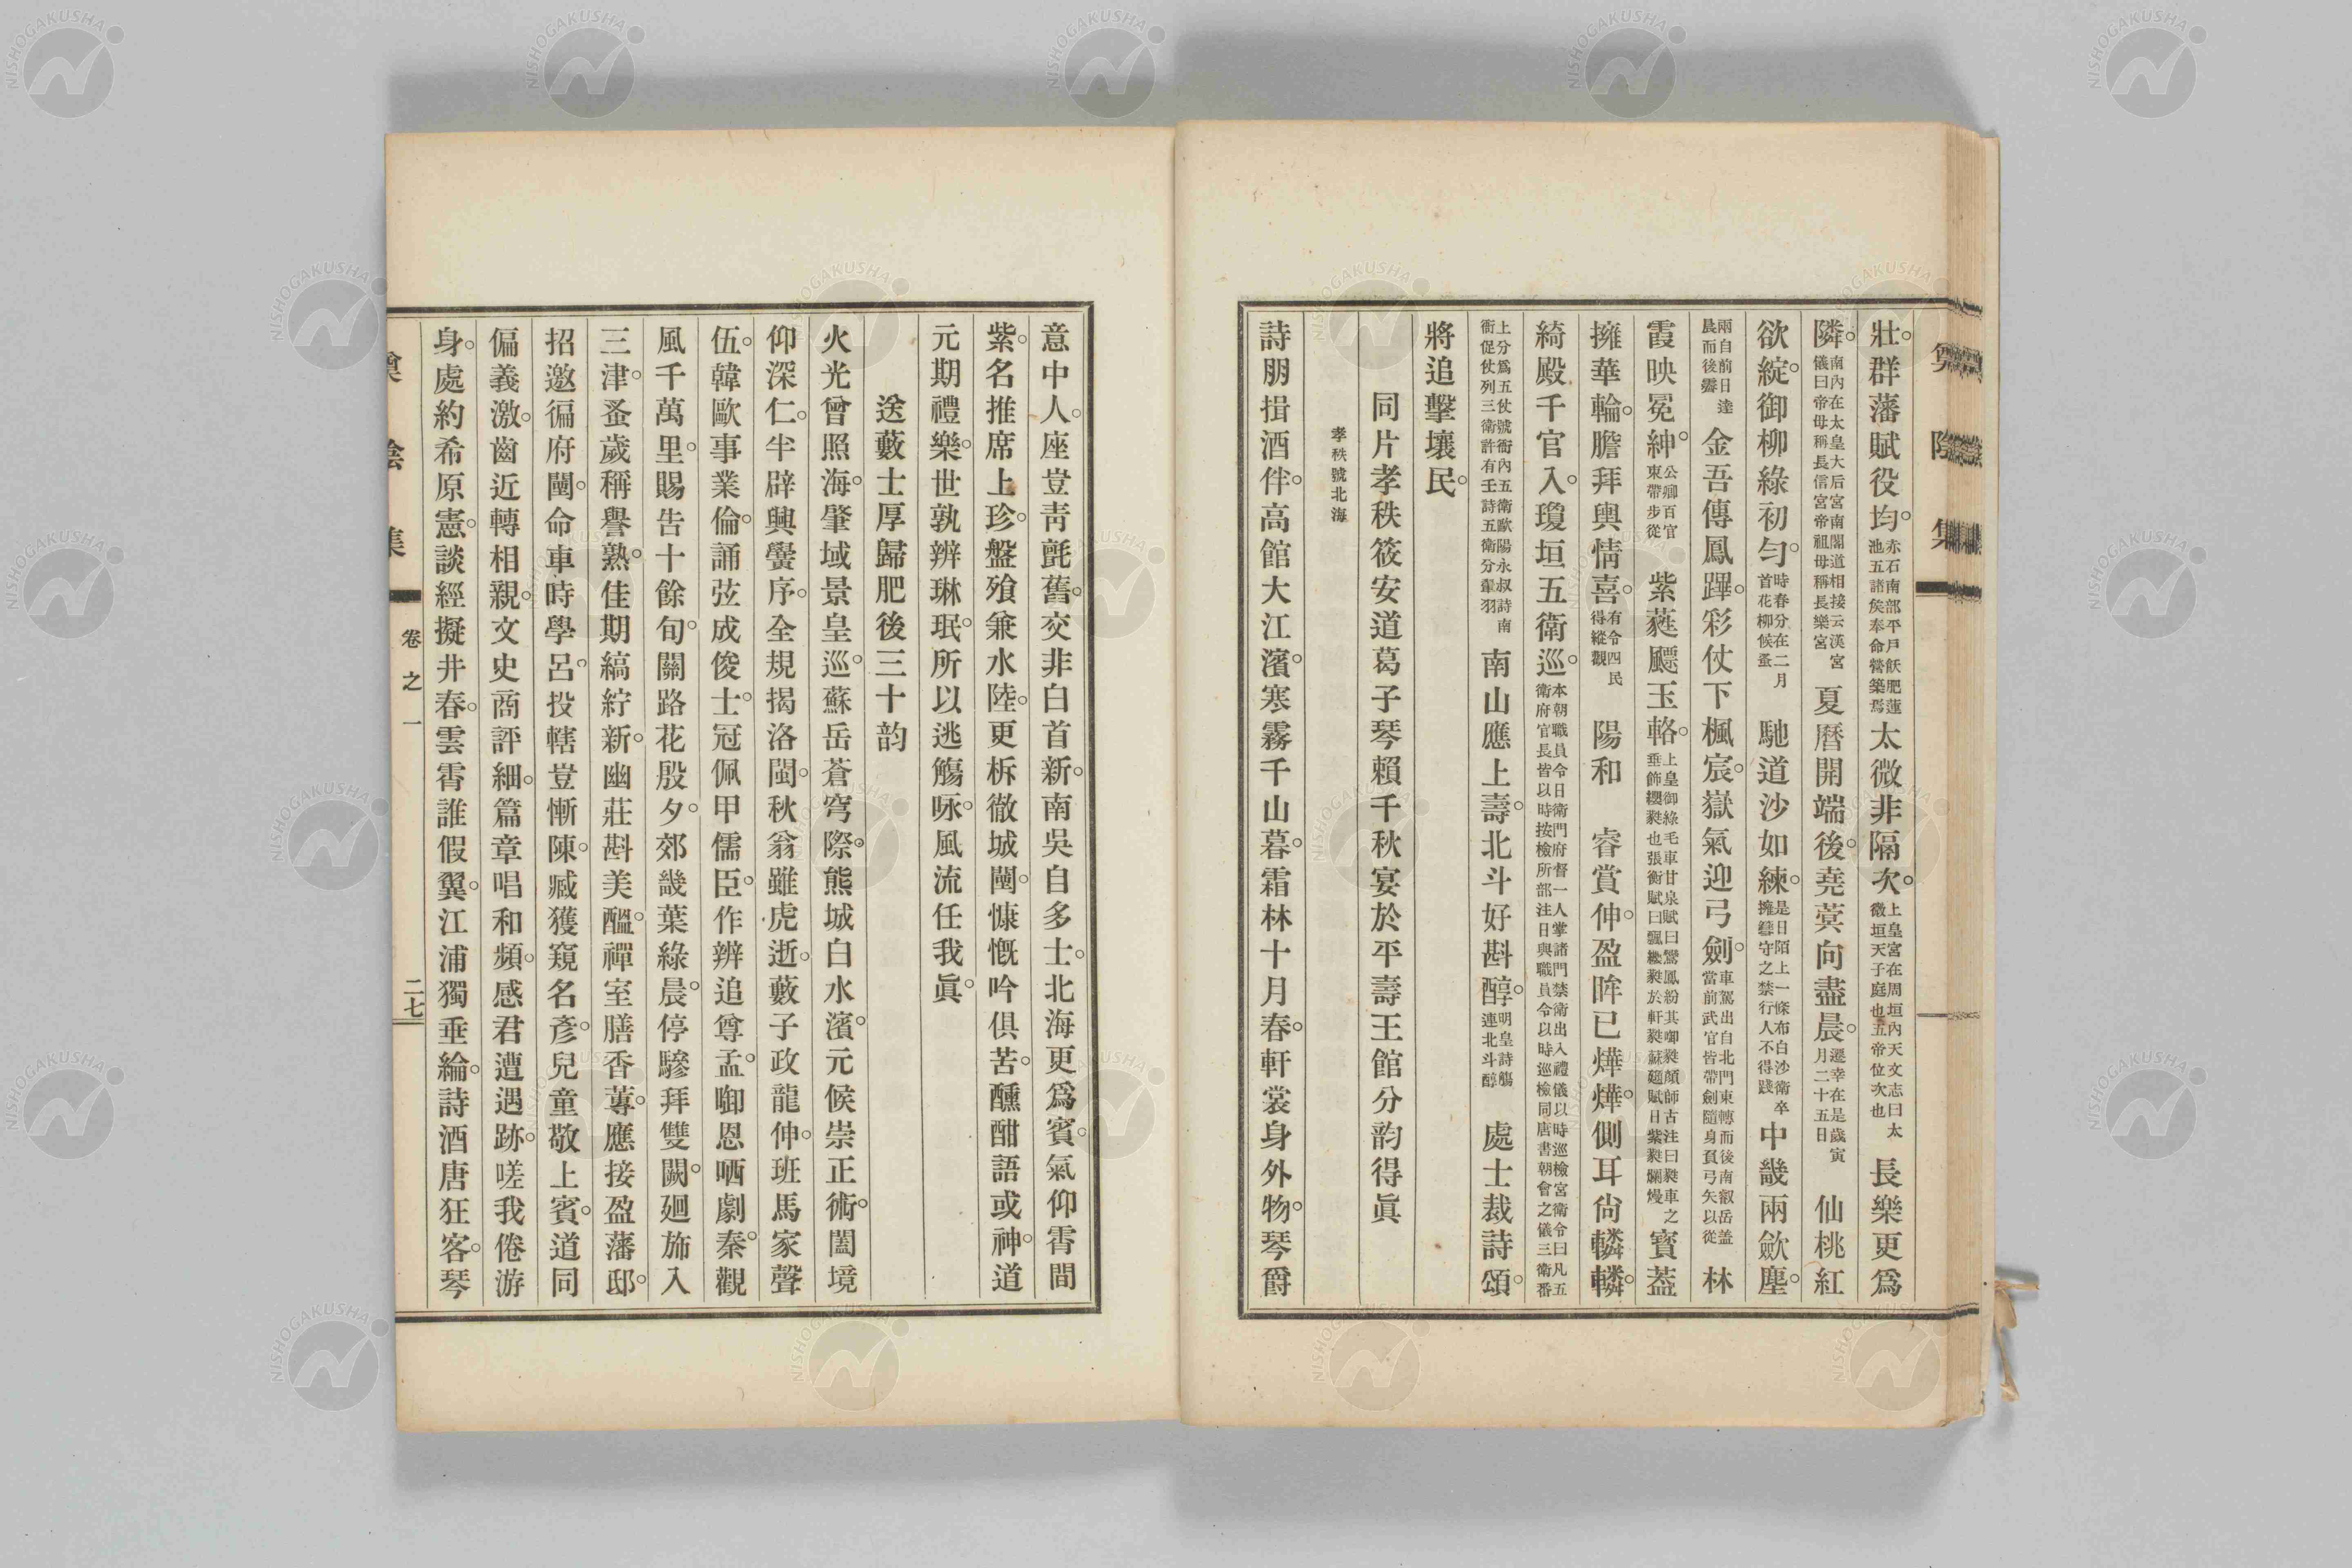 壯。群藩賦役均。赤石南部平戶飫肥蓮池五諸矦奉命營築焉太微非隔次。上皇宮在周垣內天文志曰太微垣天子庭也五帝位次也長樂更爲
隣。南內在太皇大后宮南閣道相接云漢宮儀曰帝母稱長信宮帝祖母稱長樂宮夏曆開端後。堯蓂向盡晨。遷幸在是歲寅月二十五日仙桃紅
欲綻。御柳綠初勻。時春分在二月首花柳候蚤馳道沙如練。是日陌上一條布白沙衛卒擁篲守之禁行人不得踐中畿雨歛塵。
雨自前日達晨而後霽金吾傳鳳蹕。彩仗下楓宸。嶽氣迎弓劍。車駕出自北門東轉而後南叡岳盖當前武官皆帶劍隨身負弓矢以從林
霞映冕紳。公卿百官東帶步從紫蕤飃玉輅。上皇御綠毛車甘泉賦曰鸞鳳紛其啣蕤顏師古注曰蕤車之垂飾纓蕤也張衡賦曰飄飄蕤於軒蕤蘇頲賦曰紫蕤爛熳寶蓋
擁華輪。膽拜輿情喜。有令四民得縱觀陽和 睿賞伸。盈眸已燁燁。側耳尙轔轔。
綺殿千官入。瓊垣五衛巡。本朝職員令日衛門府督一人掌諸門禁衛出入禮儀以時巡檢宮衛令曰凡五衛府官長皆以時按檢所部注日與職員令以時巡檢同唐書朝會之儀三衛番
上分爲五仗號衙內五衛歐陽永叔詩南衙促仗列三衛許有壬詩五衛分輦羽南山應上壽。北斗好斟醇。明皇詩觴連北斗醇處士裁詩頌。
將追擊壤民。
同片孝秩筱安道葛子琴賴千秋宴於平壽王館分韵得眞
孝秩號北海
詩朋揖酒伴。高館大江濱。寒霧千山暮。霜林十月春。軒裳身外物。琴爵
意中人。座豈靑氈舊。交非白首新。南吳自多士。北海更爲賓。氣仰霄間
紫。名推席上珍。盤飱兼水陸。更柝徹城闉。慷慨吟俱苦。醺酣語或神。道
元期禮樂。世孰辨琳珉。所以逃觴咏。風流任我眞。
送藪士厚歸肥後三十韵
火光曾照海。肇域景皇巡。蘇岳蒼穹際。熊城白水濱。元候崇正術。闔境
仰深仁。半辟興黌序。全規揭洛閩。秋翁雖虎逝。藪子政龍伸。班馬家聲
伍。韓歐事業倫。誦弦成俊士。冠佩甲儒臣。作辨追尊孟。啣恩哂劇秦。觀
風千萬里。賜告十餘旬。關路花殷夕。郊畿葉綠晨。停驂拜雙闕。廻斾入
三津。蚤歲稱譽熟。佳期縞紵新。幽莊斟美醞。禪室膳香蓴。應接盈藩邸。
招邀徧府闉。命車時學呂。投轄豈慚陳。臧獲窺名彥。兒童敬上賓。道同
偏義激。齒近轉相親。文史商評細。篇章唱和頻。感君遭遇跡。嗟我倦游
身。處約希原憲。談經擬井春。雲霄誰假翼。江浦獨垂綸。詩酒唐狂客。琴
卷之一
二七